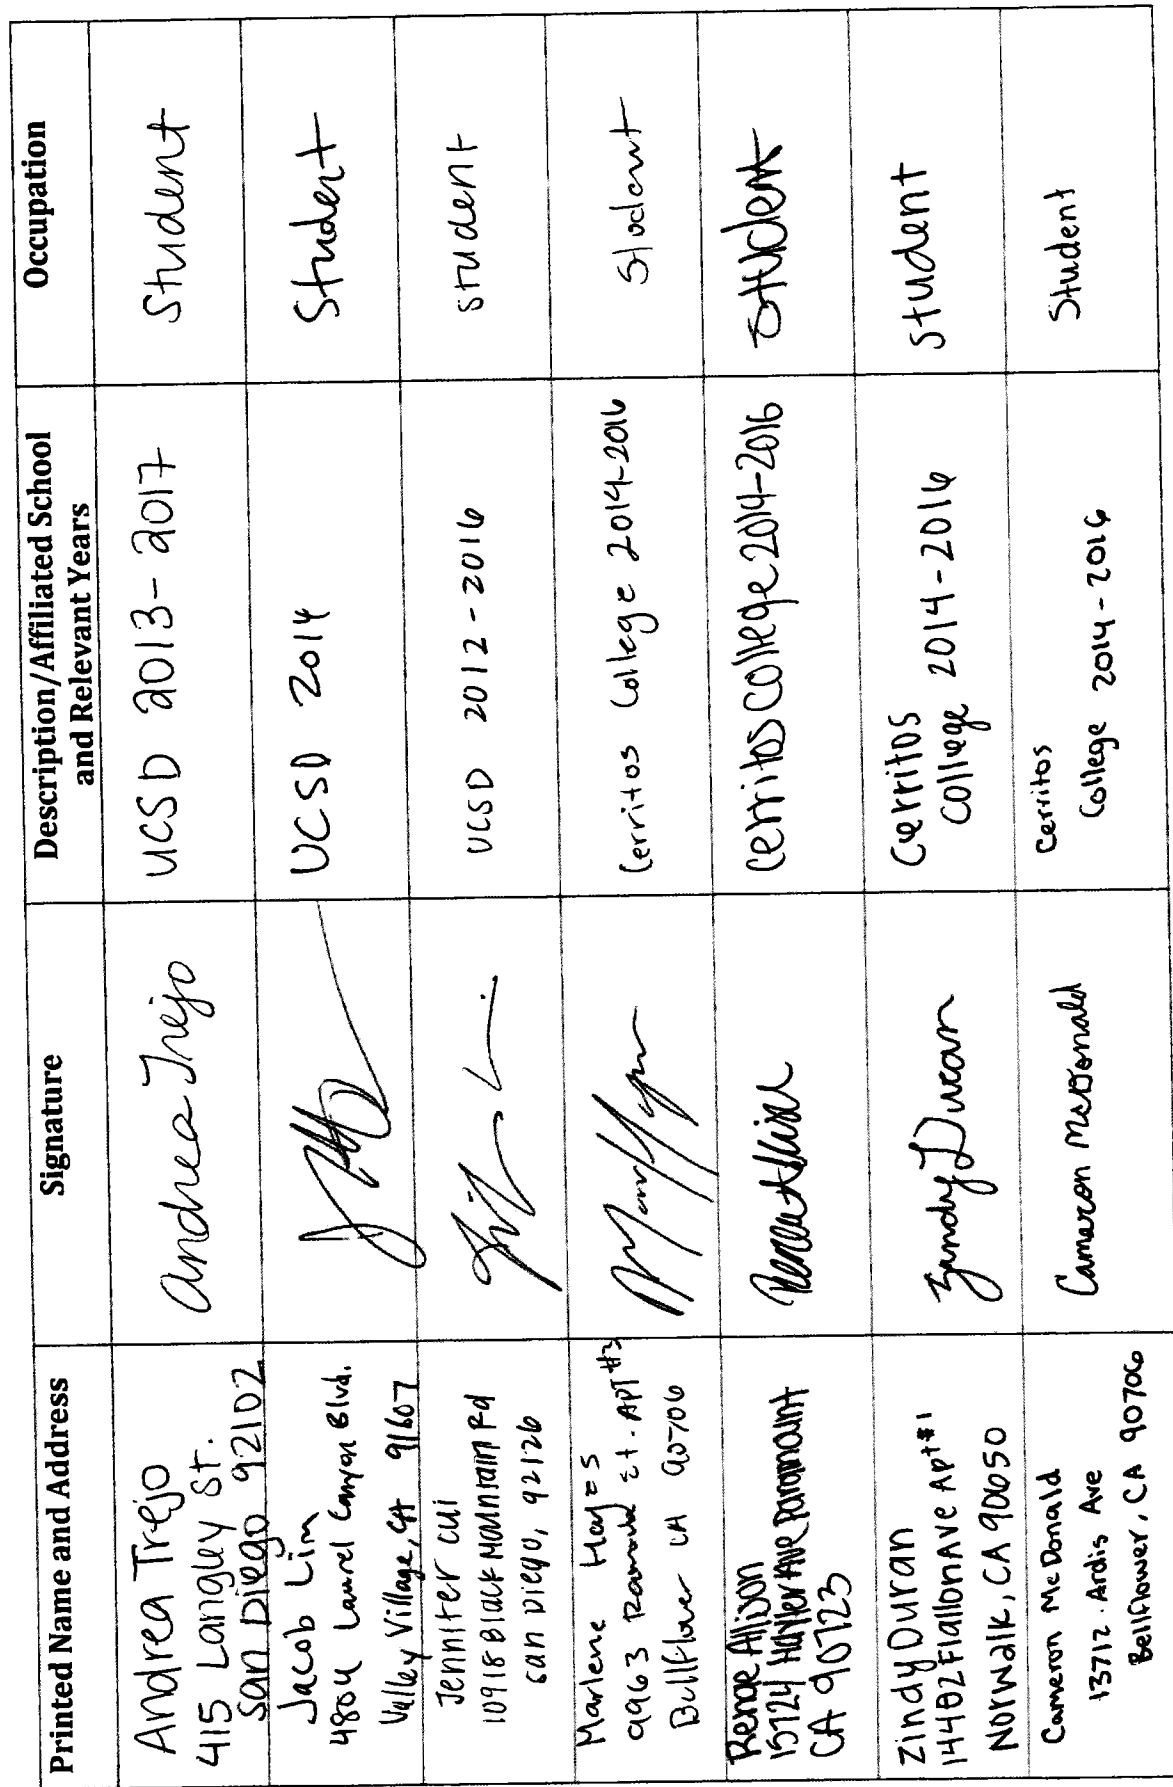 Printed Name and Address
Signature
Description/Affiliated School
and Relevant Years
Occupation
Andrea Trejo
415 Langley St.
San Diego 92102
Andrea Trejo
UCSD 2013-2017
Student
Jacob Lim
4804 Laurel Canyon Blvd.
Valley Village, CA 91607
UCSD 2014
Student
Jennifer Cui
10918 Black Mountain Rd
San Diego, 92126
UCSD 2012-2016
student
Marlene Hayes
9963 St. APT #3
Bellflower CA 90706
Cerritos College 2014-2016
Student
Renae Alison
15724 Ave Paramount
CA 90723
Cerritos College 2014-2016
Student
Zindy Duran
14402 Flallon Ave Apt#1
Norwalk, CA 90650
Zindy Duran
Cerritos
College 2014-2016
Student
Cameron McDonald
13712 Ardis Ave
Bellflower, CA 90706
Cameron McDonald
Cerritos
College 2014-2016
Student